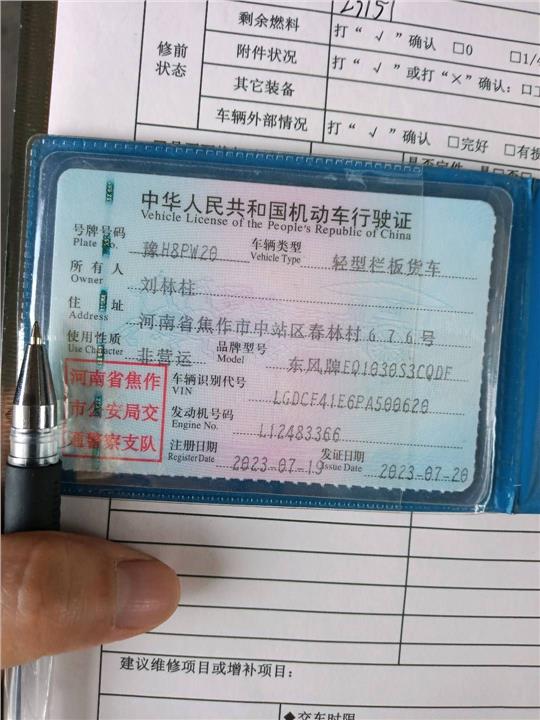 剩余燃料
打“ √ ”确认 □0 □1/4
修前
状态
附件状况
打“ √ ”或打“×”确认：
其它装备
车辆外部情况
打“ √ ”确认 □完好 □有损
中华人民共和国机动车行驶证
Vehicle License of the People's Republic of China
号牌号码 豫H8PW20 车辆类型 轻型栏板货车
Plate No. Vehicle Type
所有人 刘林柱
Owner
住址 河南省焦作市中站区春林村676号
Address
使用性质 非营运 品牌型号 东风牌EQ1030S3CQDF
Use Character Model
河南省焦作
市公安局交
通警察支队
车辆识别代号 LGDCF41E6PA500620
VIN
发动机号码 L12483366
Engine No.
注册日期 2023-07-19 发证日期 2023-07-20
Register Date Issue Date
建议维修项目或增补项目：
◆交车时限